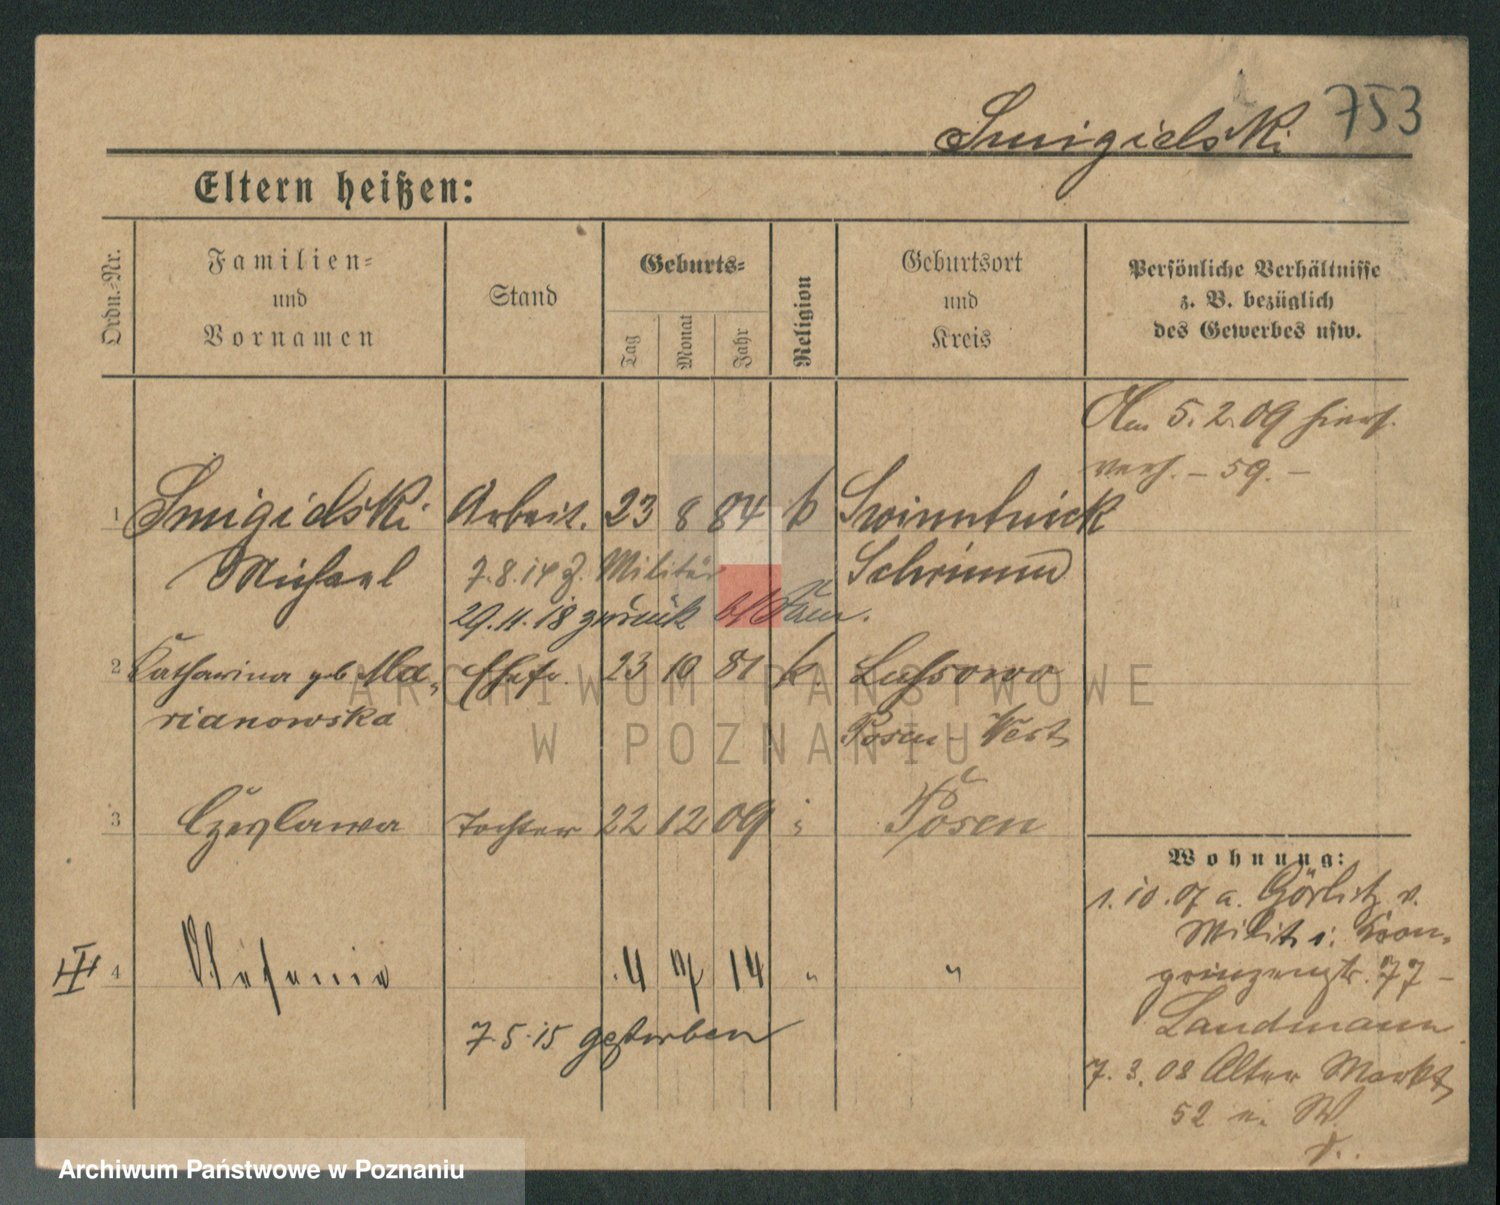 753
Smigielski
Eltern heißen:
Ordn.-Nr.
Familien-
und
Vornamen
Stand
Geburts-
Tag
Monat
Jahr
Religion
Geburtsort
und
Kreis
Persönliche Verhältnisse
z. B. bezüglich
des Gewerbes usw.
Am 5.2.09 hiers.
verh. - 59. -
1 Smigielski Arbeit. 23 8 84 k
Michael Schrimm
7.8.14 z. Militär
29.11.18 zurück
2 Katharina geb Ma- Ehefr. 23 10 81 k Lussowo
rianowska Posen-West
3 Czeslawa Tochter 22 12 09 " Posen
Wohnung:
1.10.07 a. Görlitz v.
Milit. i. Kron-
prinzenstr. 77 -
Landmann
III 4 Stefania 4 14 " "
7.5.15 gestorben
7.3.08 Alter Markt
52
ARCHIWUM PAŃSTWOWE
W POZNANIU
Archiwum Państwowe w Poznaniu